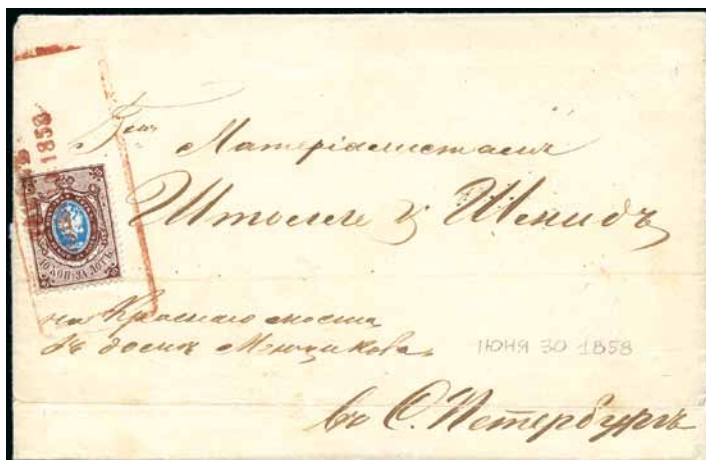 1858
10 КОП. ЗА ЛОТЪ
Гг.
Матеріалистамъ
Штолле и Шмидъ
на Краснаго моста
въ домѣ Менщикова
ІЮНЯ 30 1858
въ С. Петербургъ